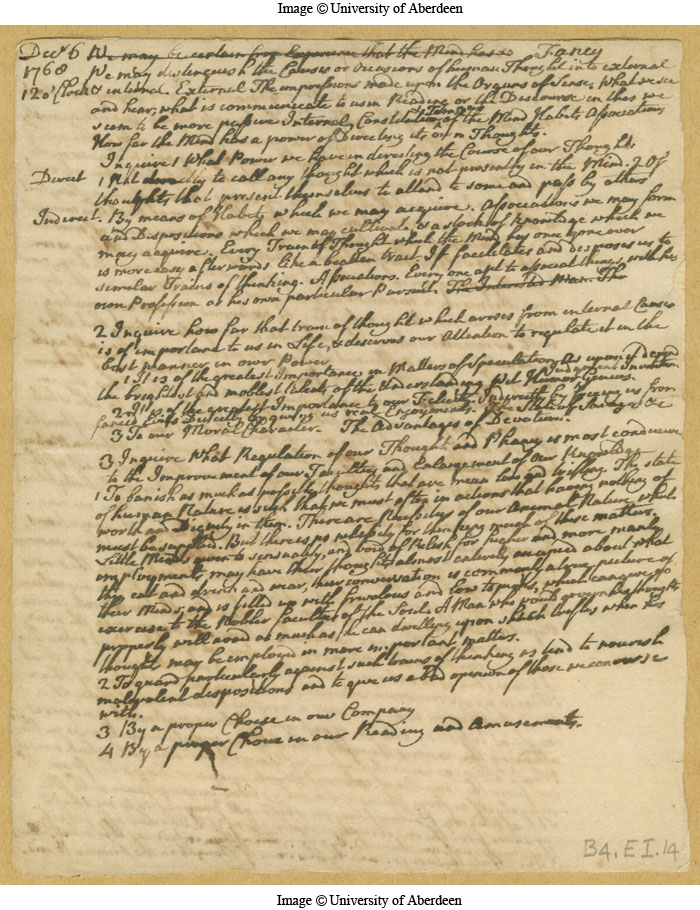 Image © University of Aberdeen
Decr 6 We may be certain from Experience that the Mind has Fancy
1768 We may distinguish the Causes or Occasions of human Thought into external
12 o'Clock & internal. External The impressions made upon the Organs of Sense, What we see
and hear, what is communicate to us in Reading or the Discourse in these we
seem to be more passive Internal, Constitution, of the Mind Habits Association,
How far the Mind has a power of Directing its own Thoughts.
Inquire 1 What Power we have in directing the Course of our Thoughts
Direct 1 Not directly to call any thought which is not presently in the Mind. 2 Of
thoughts that present themselves to attend to some and pass by others
Indirect. By means of Habits which we may acquire. Associations we may form
and Dispositions which we may cultivate & a stock of knowledge which we
may acquire. Every Train of Thought which the Mind has once gone over
is more easy afterwards like a beaten tract. It facilitates and disposes us to
similar Trains of thinking. Associations. Every one apt to associat things with his
own Profession or his own particular Pursuit. The Interested Man. The
2 Inquire how far that train of thought which arises from internal Causes
is of importance to us in Life, & deserves our Attention to regulate it in the
best manner in our Power
1 It is of the greatest Importance in Matters of Speculation, As upon it depend
the brightest and noblest talents of the Understanding Wit Humor Genius.
Judgment Invention
2 It is of the greatest Importance to our Felicity Indirectly by freeing us from
fancied Directly by giving us real Enjoyments. The
3 To our Moral Character. The Advantages of Devotion.
3 Inquire What Regulation of our Thought and Phancy is most conducive
to the Improvement of our Faculties and Enlargement of our Knowledge
1 To banish as much as possible thoughts that are mean low and trifling. The state
of human Nature is such that we must often in actions that having nothing of
worth and Dignity in them. There are Necessities of our Animal Nature which
must be supplied. But there is no necessity for thinking much of these matters.
Little Minds given to sensuality, and void of Relish for higher and more manly
employments, may have their thoughts almost entirely occupied about what
they eat and drink and wear, their conversation is commonly a true picture of
their Minds, and is filled up with frivolous and low topicks, which can give no
exercise to the Nobler faculties of the Soul. A Man who would govern his thoughts
properly will avoid as much as he can dwelling upon such trifles when his
thought may be employed in more important matters.
2 To guard particularly against such trains of thinking as tend to nourish
malevolent dispositions and to give us a bad opinion of those we converse
with.
3 By a proper Choise in our Company
4 By a proper Choice in our Reading and Amusements.
B4. E I. 14
Image © University of Aberdeen